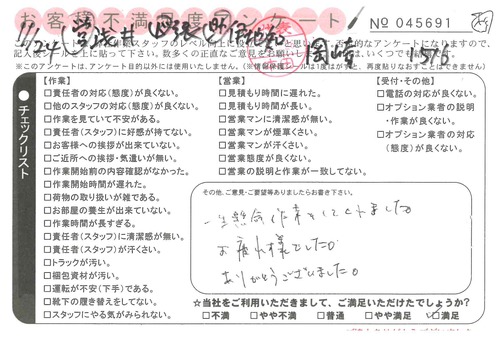 お客様不満足度アンケート
No 045691
11/24
岡崎
1576
※このアンケートは、アンケート目的以外には使用いたしません。
チェックリスト
【作業】
□責任者の対応(態度)が良くない。
□他のスタッフの対応(態度)が良くない。
□作業を見ていて不安がある。
□責任者(スタッフ)に好感が持てない。
□お客様への挨拶が出来ていない。
□ご近所への挨拶・気遣いが無い。
□作業開始前の内容確認がなかった。
□作業開始時間が遅れた。
□荷物の取り扱いが雑である。
□お部屋の養生が出来ていない。
□作業時間が長すぎる。
□責任者(スタッフ)に清潔感が無い。
□責任者(スタッフ)が汗くさい。
□トラックが汚い。
□梱包資材が汚い。
□運転が不安(下手)である。
□靴下の履き替えをしてない。
□スタッフにやる気がみられない。
【営業】
□見積もり時間に遅れた。
□見積もり時間が長い。
□営業マンに清潔感が無い。
□営業マンが煙草くさい。
□営業マンが汗くさい。
□営業態度が良くない。
□営業の説明と作業が一致してない。
【受付・その他】
□電話の対応が良くない。
□オプション業者の説明
・作業が良くない。
□オプション業者の対応
(態度)が良くない。
その他、ご意見・ご要望等ありましたらお書き下さい。
一生懸命作業をしてくれました。
お疲れ様でした。
ありがとうございました。
☆当社をご利用いただきまして、ご満足いただけたでしょうか?
□不満 □やや不満 □普通 □やや満足 ☑満足